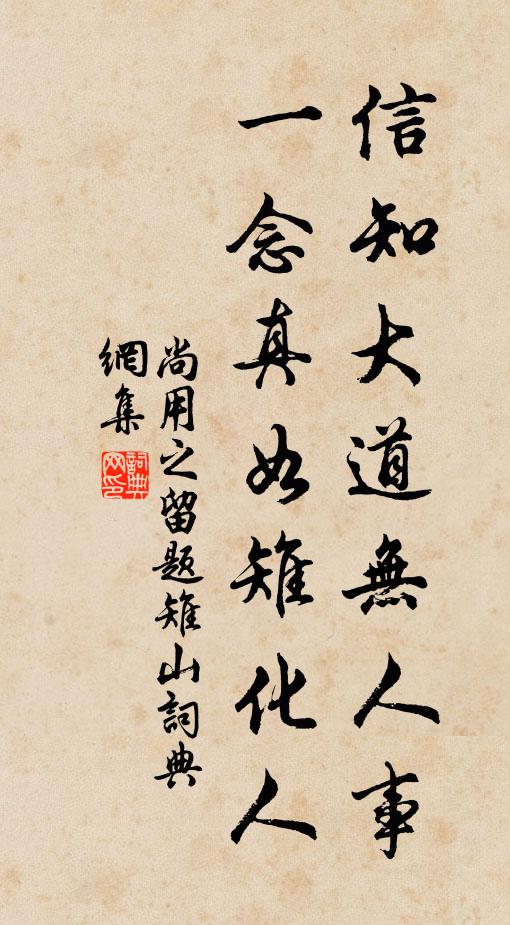 信知大道無人事
一念真如雉化人
尚用之留题雉山詞典
網集
詞典
网印